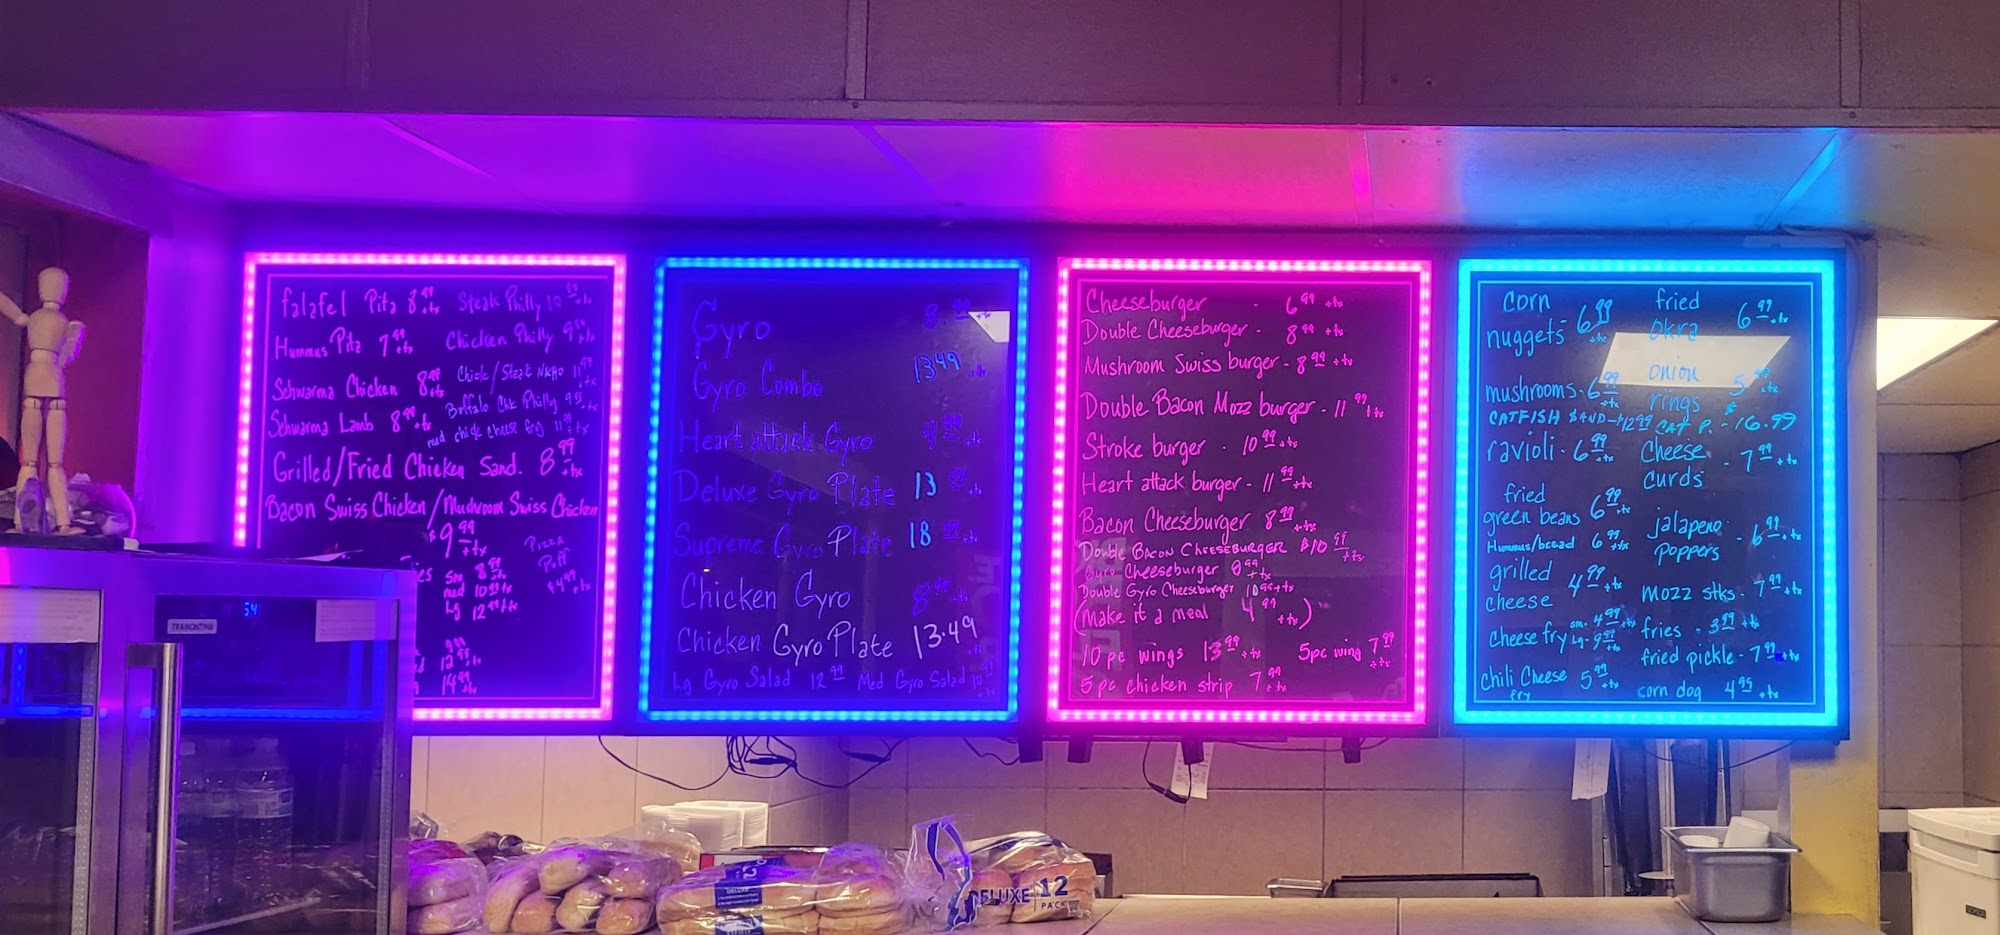 falafel Pita 8.99 +tx Steak Philly 10.99 +tx
Hummus Pita 7.99 +tx Chicken Philly 9.99 +tx
Schwarma Chicken 8.99 +tx Chick/Steak Nacho 11.99 +tx
Schwarma Lamb 8.99 +tx Buffalo Chk Philly 9.99 +tx
chick cheese fry 11.99 +tx
Grilled/Fried Chicken Sand. 8.99 +tx
Bacon Swiss Chicken/Mudroom Swiss Chicken
$9.99 +tx
Pizza
Puff
$4.99 +tx
sm 8.99 +tx
med 10.99 +tx
Lg 12.99 +tx
12.99
14.99 +tx
54
TRAMONTINA
Gyro 8.99 +tx
Gyro Combo 13.49 +tx
Heart attack Gyro 9.99 +tx
Deluxe Gyro Plate 13.99 +tx
Supreme Gyro Plate 18.99 +tx
Chicken Gyro 8.99 +tx
Chicken Gyro Plate 13.49
Lg Gyro Salad 12.99 Med Gyro Salad 10.99 +tx
Cheeseburger - 6.99 +tx
Double Cheeseburger - 8.99 +tx
Mushroom Swiss burger - 8.99 +tx
Double Bacon Mozz burger - 11.99 +tx
Stroke burger - 10.99 +tx
Heart attack burger - 11.99 +tx
Bacon Cheeseburger 8.99 +tx
Double BACON CHEESEBURGER $10.99 +tx
Gyro Cheeseburger 8.99 +tx
Double Gyro Cheeseburger 10.99 +tx
(make it a meal 4.99 +tx)
10 pc wings 13.99 +tx 5pc wing 7.99 +tx
5 pc chicken strip 7.99 +tx
corn nuggets - 6.99 +tx
fried okra 6.99 +tx
mushrooms - 6.99 +tx
onion rings 5.99 +tx
CATFISH SAND - $12.99 CAT P. - $16.99
ravioli - 6.99 +tx
Cheese curds - 7.99 +tx
fried green beans 6.99 +tx
Hummus/bread 6.99 +tx
jalapeno poppers - 6.99 +tx
grilled cheese 4.99 +tx
mozz stks - 7.99 +tx
Cheese fry sm - 4.99 +tx Lg - 9.99 +tx
fries - 3.99 +tx
fried pickle - 7.99 +tx
Chili Cheese fry 5.99 +tx
corn dog 4.99 +tx
DELUXE
DELUXE 12
PACK